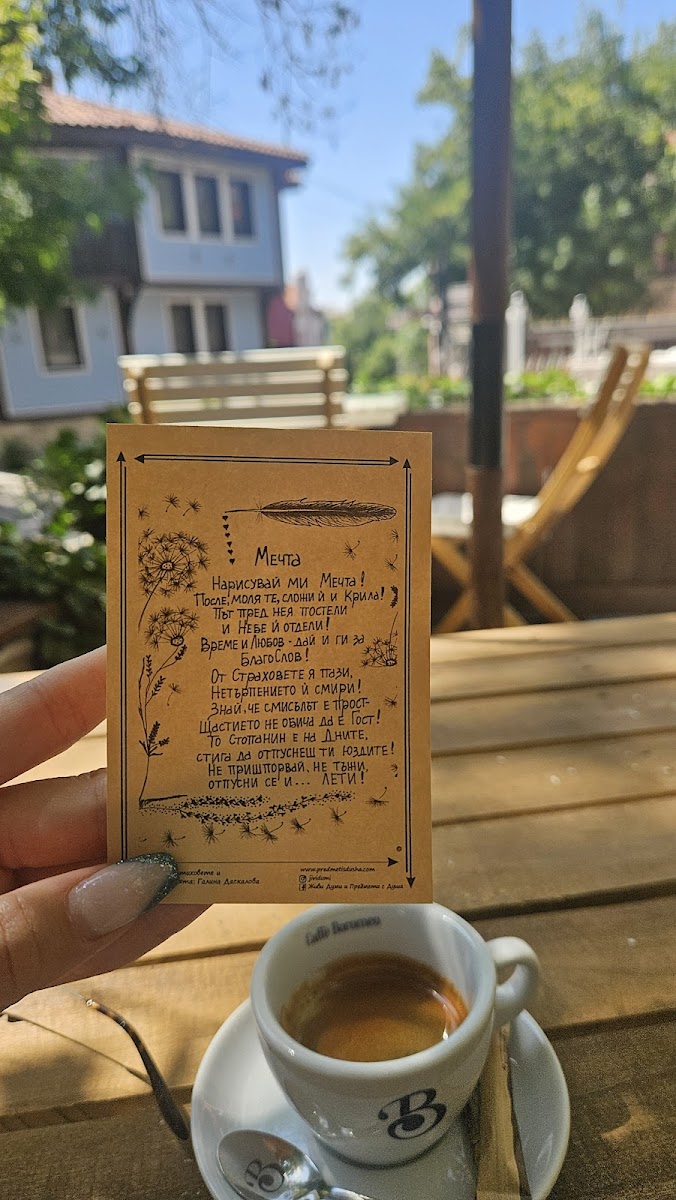 Мечта
Нарисувай ми Мечта!
После, моля те, сложи ѝ и Крила!
Път пред нея постели
и Небе ѝ отдели!
Време и Любов - дай и ги за
БлагоСлов!
От Страховете я пази,
Нетърпението ѝ смири!
Знай, че смисълът е прост-
Щастието не обича да е Гост!
То Стопанин е на Дните,
стига да отпуснеш ти юздите!
Не пришпорвай, не тъжи,
отпусни се и... ЛЕТИ!
стиховете и
Галина Даскалова
www.predmetisdusha.com
jividumi
Живи Думи и Предмети с Душа
Caffè Boromeo
B
B